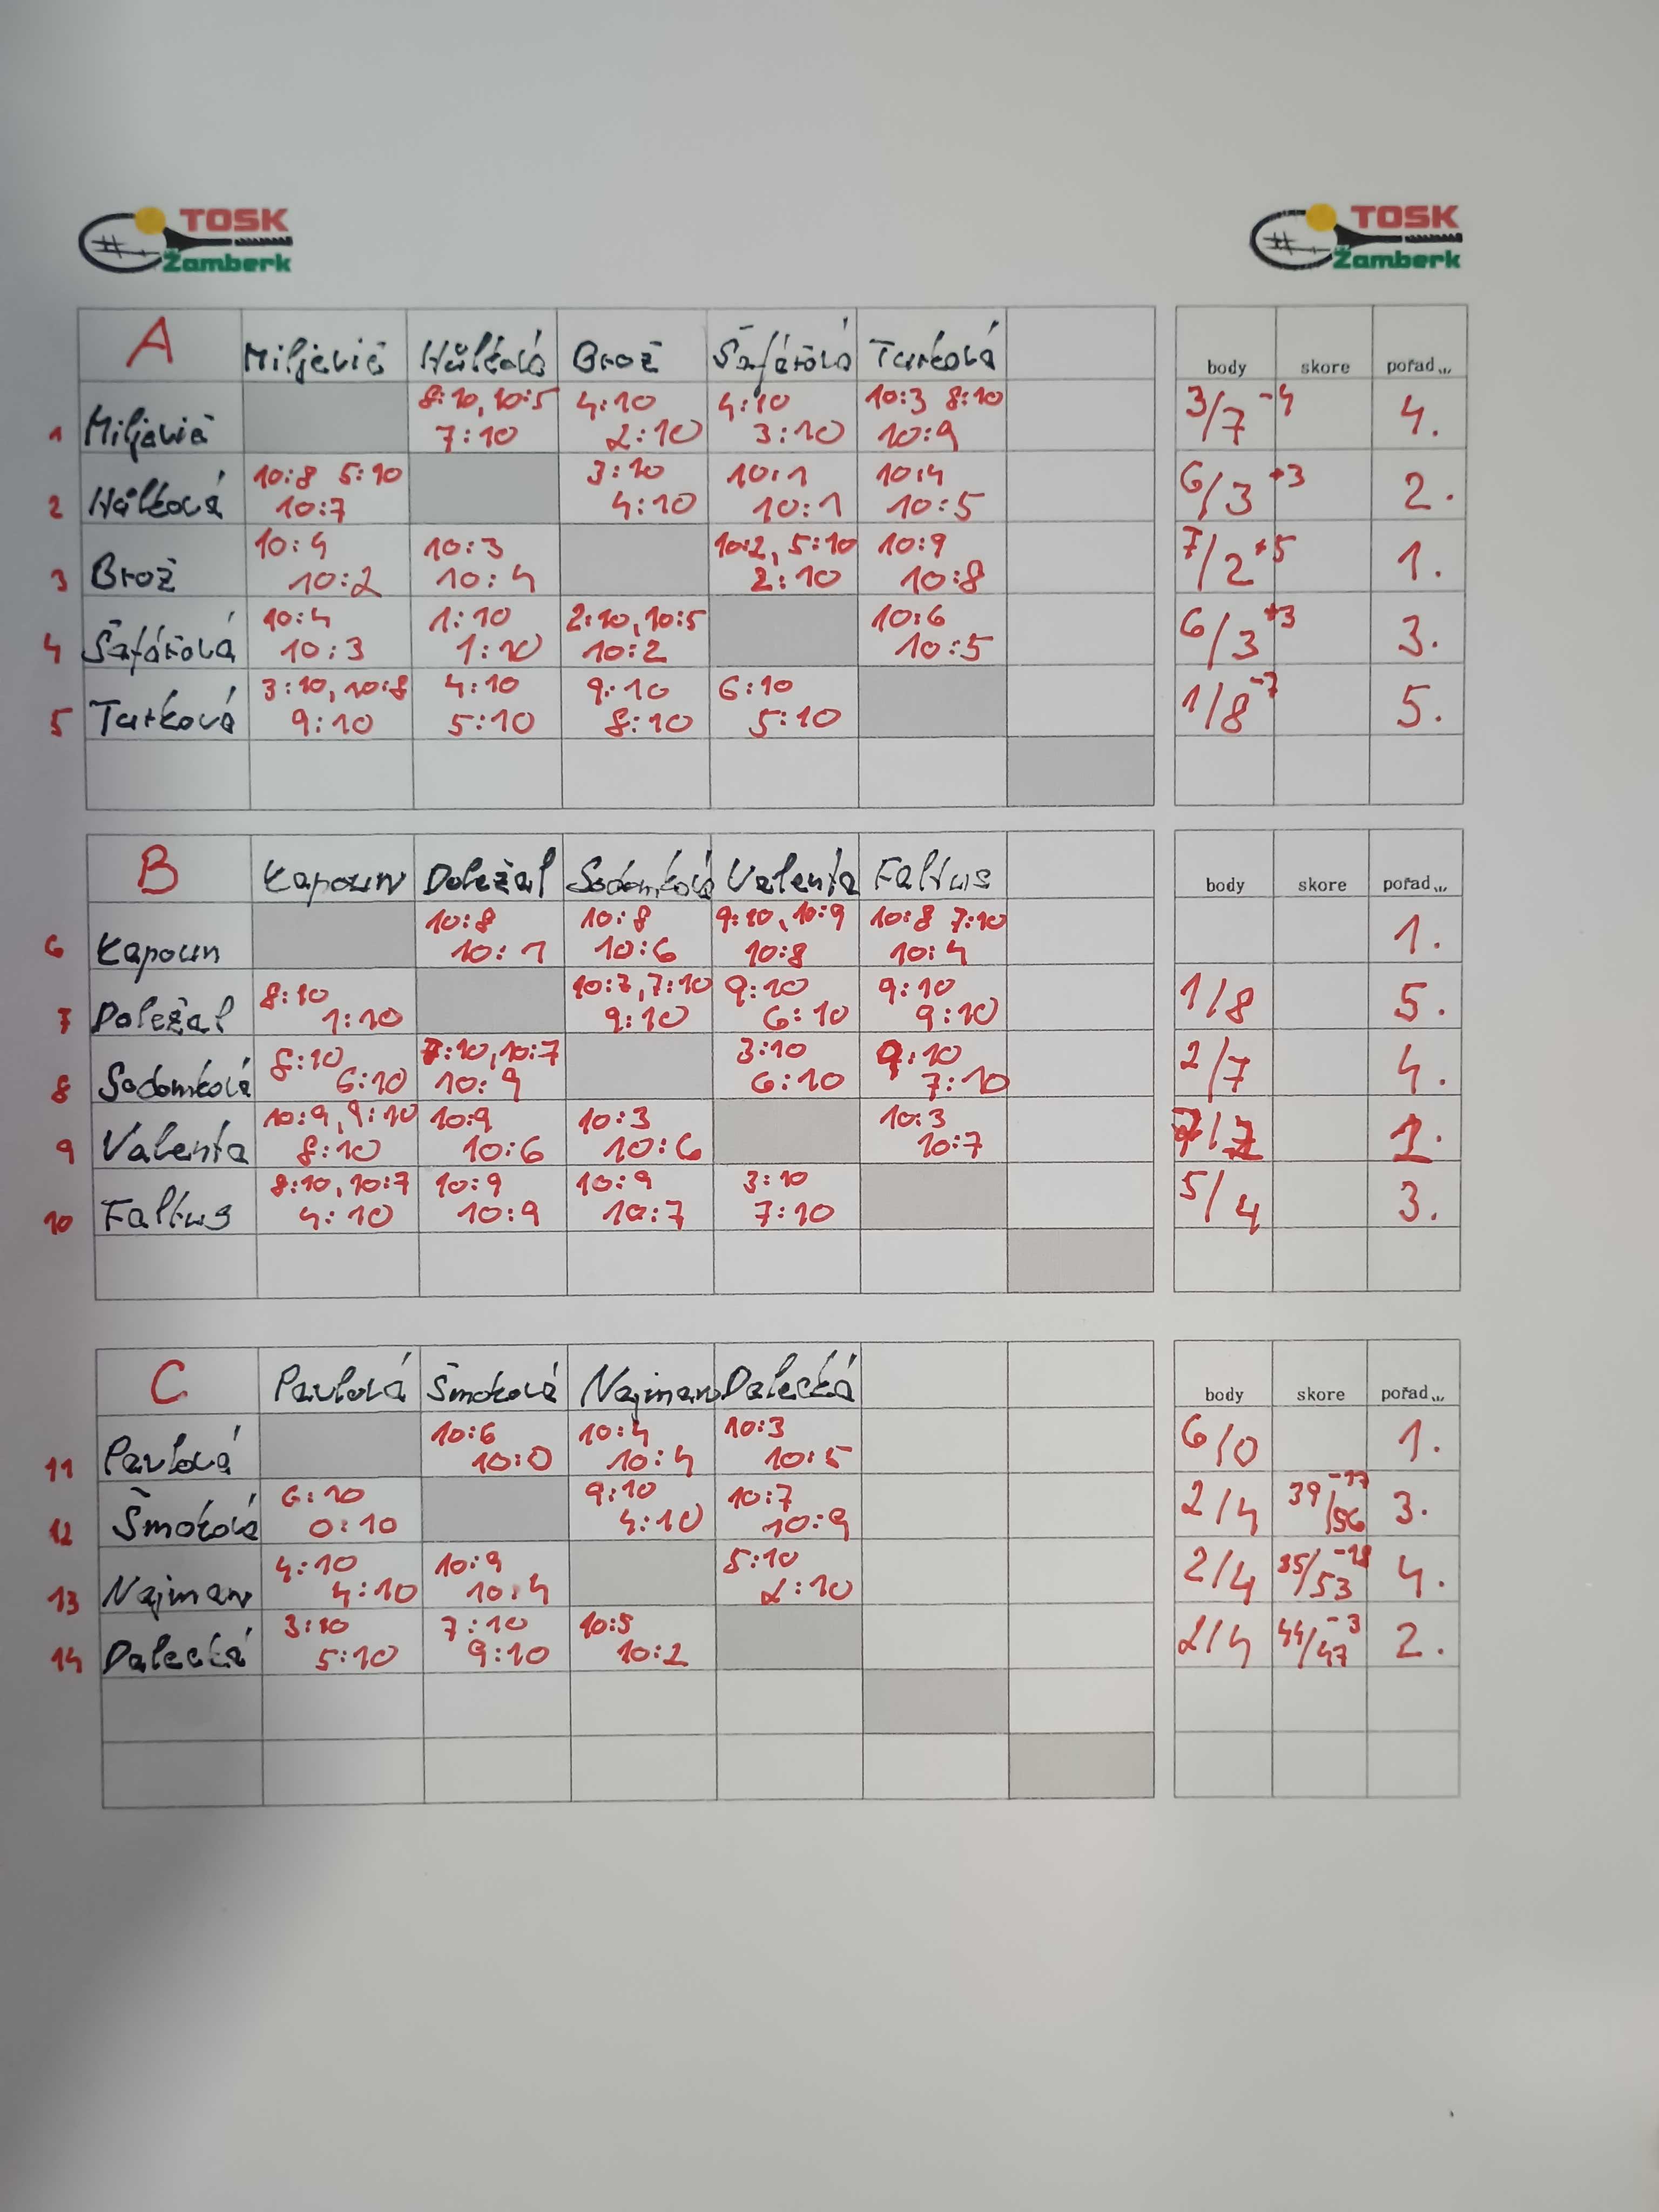 TOSK
Žamberk
TOSK
Žamberk
A Miljević Hůlková Brož Šafářová Turková body skore pořad...
8:10, 10:5 4:10 4:10 10:3 8:10 3/7 -4
1 Miljević 7:10 2:10 3:10 10:9 4.
10:8 5:10 3:10 10:1 10:4 6/3 +3
2 Hůlková 10:7 4:10 10:1 10:5 2.
10:4 10:3 10:2, 5:10 10:9 7/2 +5
3 Brož 10:2 10:4 2:10 10:8 1.
10:4 1:10 2:10, 10:5 10:6 6/3 +3
4 Šafářová 10:3 1:10 10:2 10:5 3.
3:10, 10:8 4:10 9:10 6:10 1/8 -7
5 Turková 9:10 5:10 8:10 5:10 5.
B Kapoun Doležal Sodomková Valenta Faltus body skore pořad...
10:8 10:8 9:10, 10:9 10:8 7:10
6 Kapoun 10:1 10:6 10:8 10:4 1.
8:10 10:7, 7:10 9:10 9:10 1/8
7 Doležal 1:10 9:10 6:10 9:10 5.
8:10 7:10, 10:7 3:10 9:10 2/7
8 Sodomková 6:10 10:9 6:10 7:10 4.
10:9, 9:10 10:9 10:3 10:3
9 Valenta 8:10 10:6 10:6 10:7 2.
8:10, 10:7 10:9 10:9 3:10 5/4
10 Faltus 4:10 10:9 10:7 7:10 3.
C Pavlová Šmoková Najman Dalecká body skore pořad...
10:6 10:4 10:3 6/0
11 Pavlová 10:0 10:4 10:5 1.
6:10 9:10 10:7 2/4 39/56 -17
12 Šmoková 0:10 4:10 10:9 3.
4:10 10:9 5:10 2/4 35/53 -18
13 Najman 4:10 10:4 2:10 4.
3:10 7:10 10:5 2/4 44/47 -3
14 Dalecká 5:10 9:10 10:2 2.